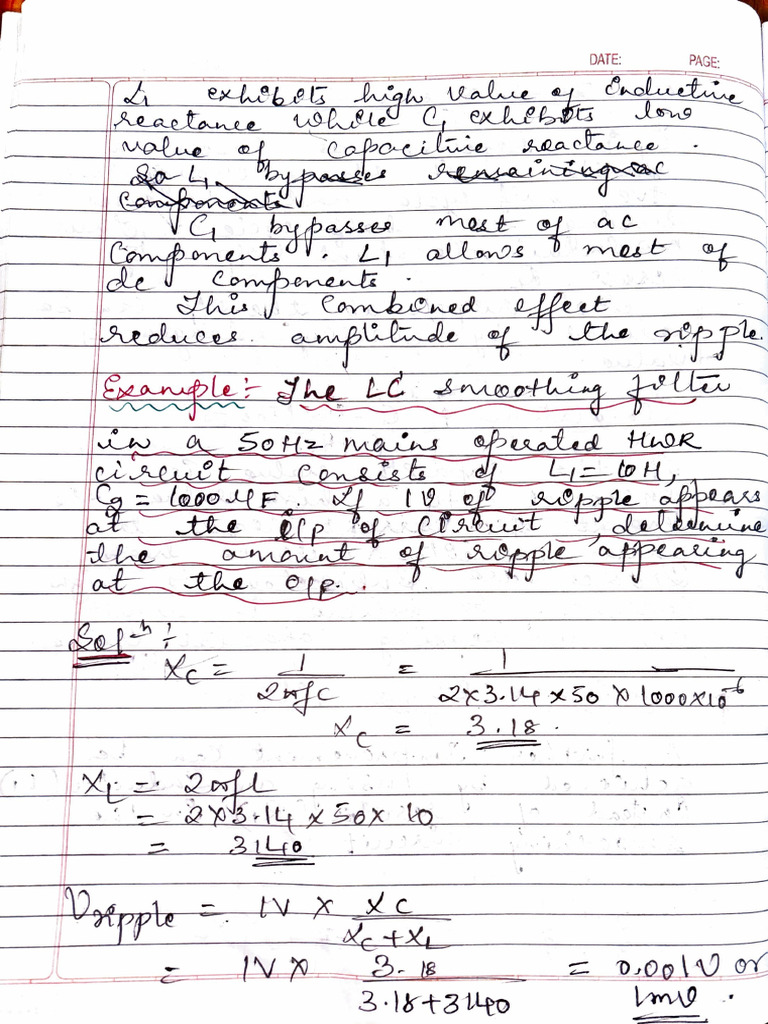 DATE: PAGE:
L₁ exhibits high value of inductive
reactance while C₁ exhibits low
value of capacitive reactance.
So L₁ bypasses remaining ac
components
C₁ bypasses most of ac
components. L₁ allows most of
dc components.
This combined effect
reduces amplitude of the ripple.
Example:- The LC smoothing filter
in a 50Hz mains operated HWR
circuit consists of L₁ = 10H,
Cg = 1000 μF. If 1V of ripple appears
at the i/p of circuit, determine
the amount of ripple appearing
at the o/p.
Solⁿ :
Xc = 1 / 2πfC = 1 / 2×3.14×50×1000×10⁻⁶
Xc = 3.18.
XL = 2πfL
= 2×3.14×50×10
= 3140
Vripple = 1V × XC / Xc+XL
= 1V × 3.18 / 3.18+3140 = 0.001V or
1mV.